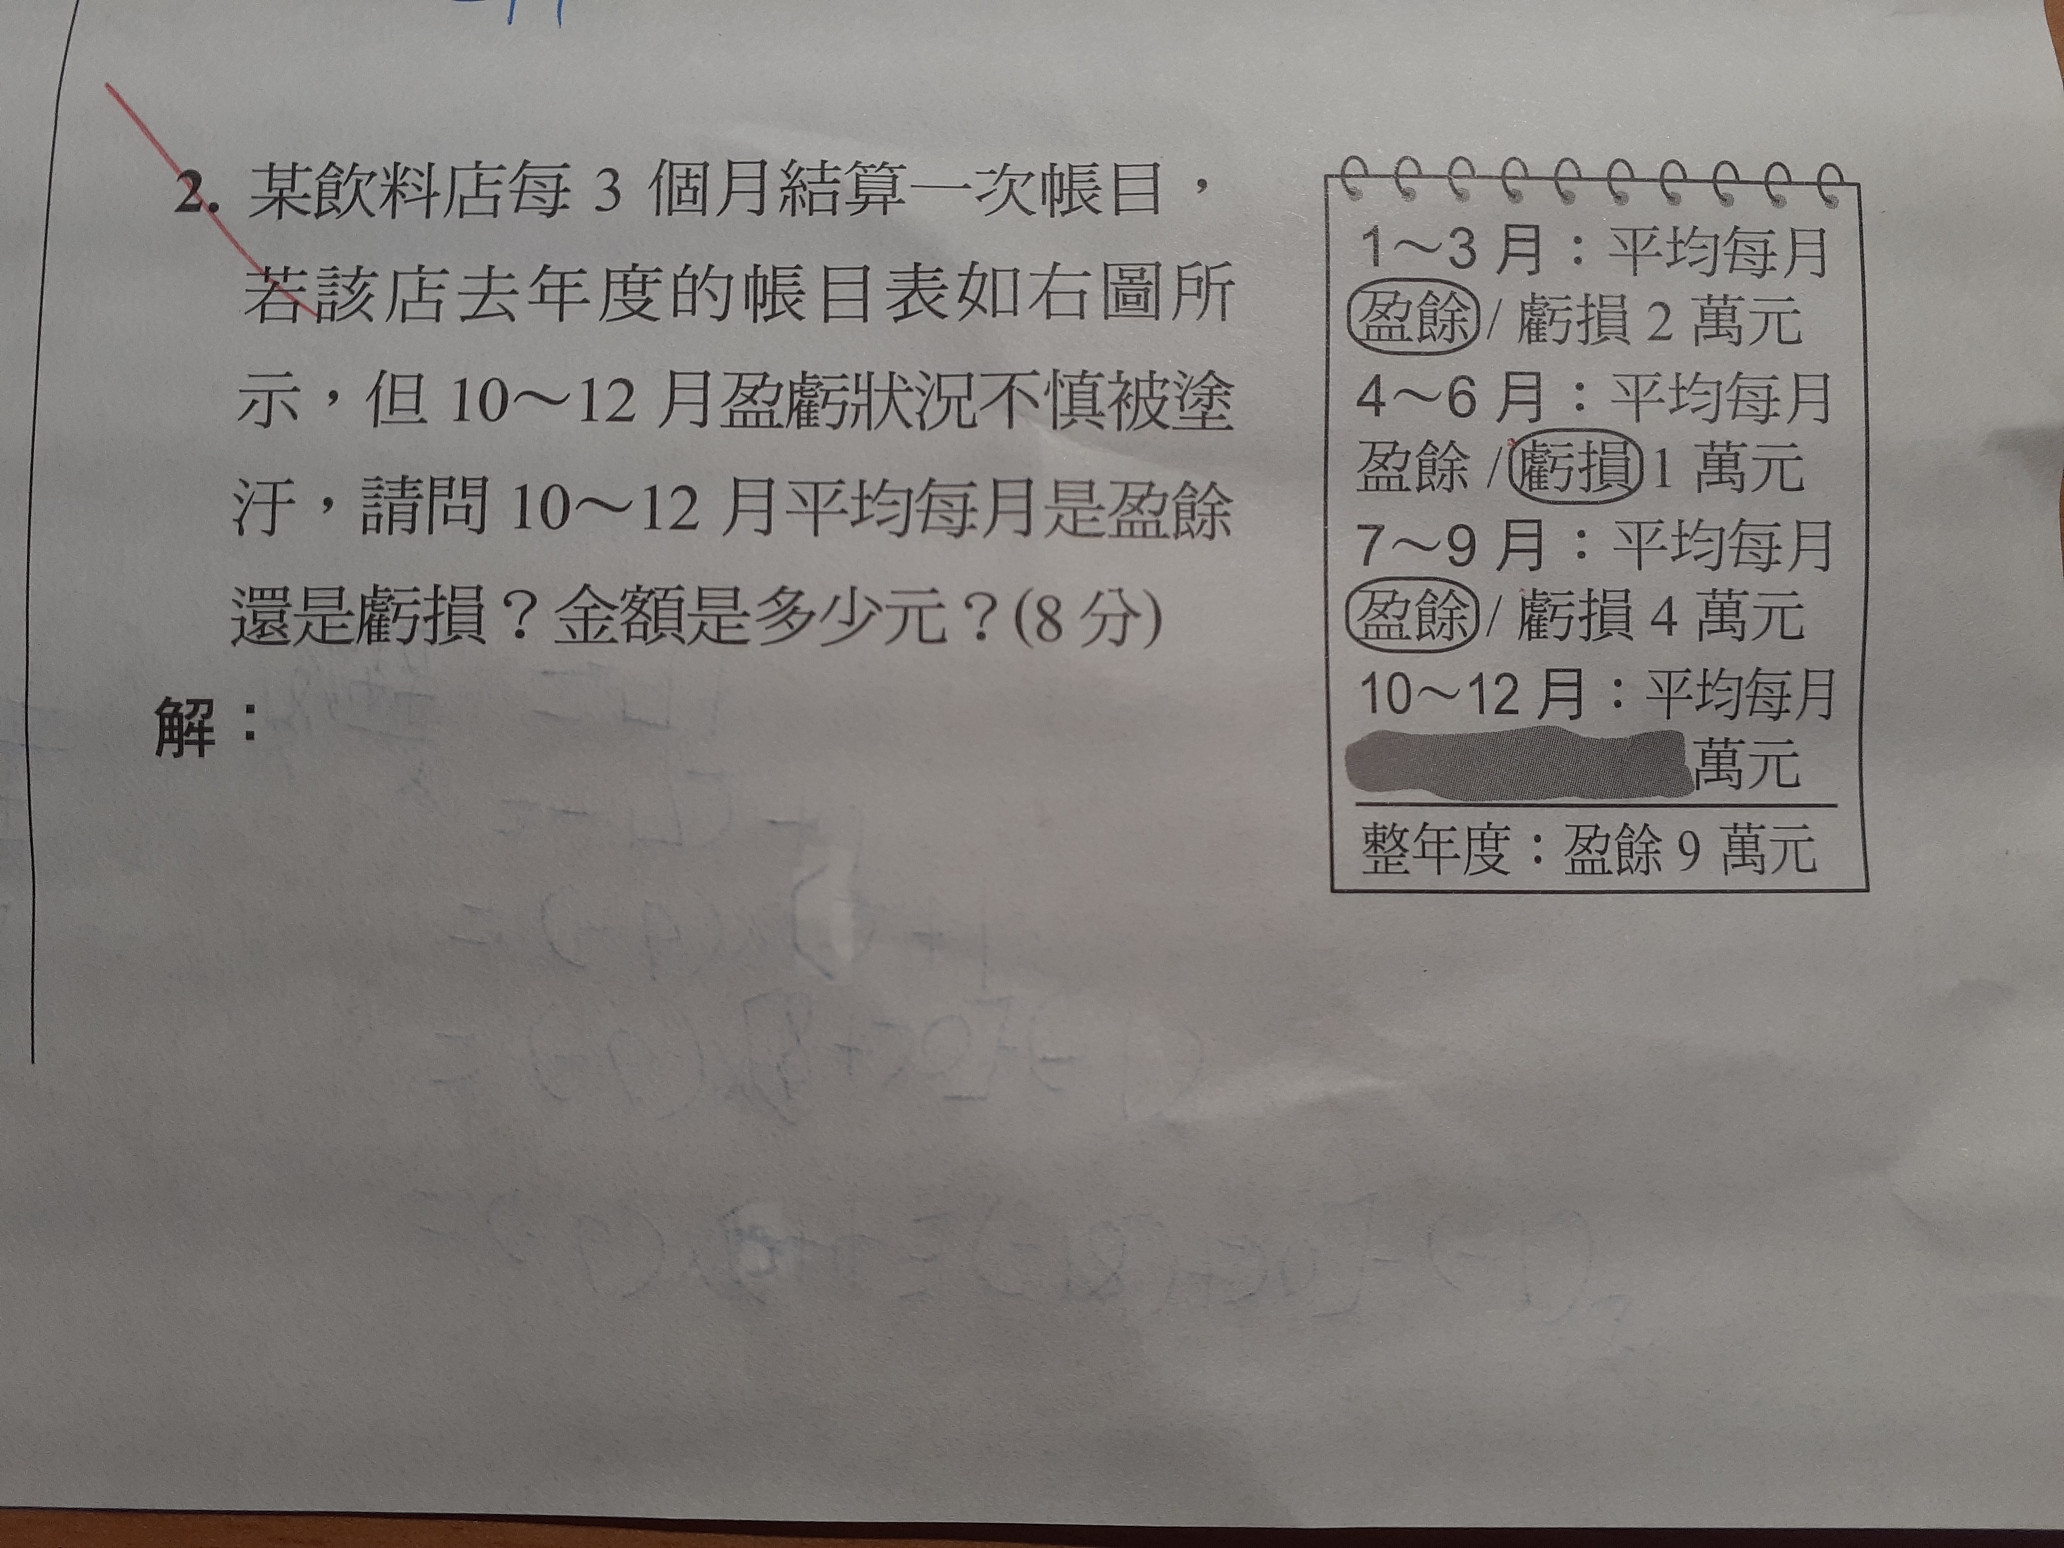 2. 某飲料店每 3 個月結算一次帳目，
若該店去年度的帳目表如右圖所
示，但 10～12 月盈虧狀況不慎被塗
汙，請問 10～12 月平均每月是盈餘
還是虧損？金額是多少元？(8 分)
解：
1～3 月：平均每月
盈餘 / 虧損 2 萬元
4～6 月：平均每月
盈餘 / 虧損 1 萬元
7～9 月：平均每月
盈餘 / 虧損 4 萬元
10～12 月：平均每月
萬元
整年度：盈餘 9 萬元